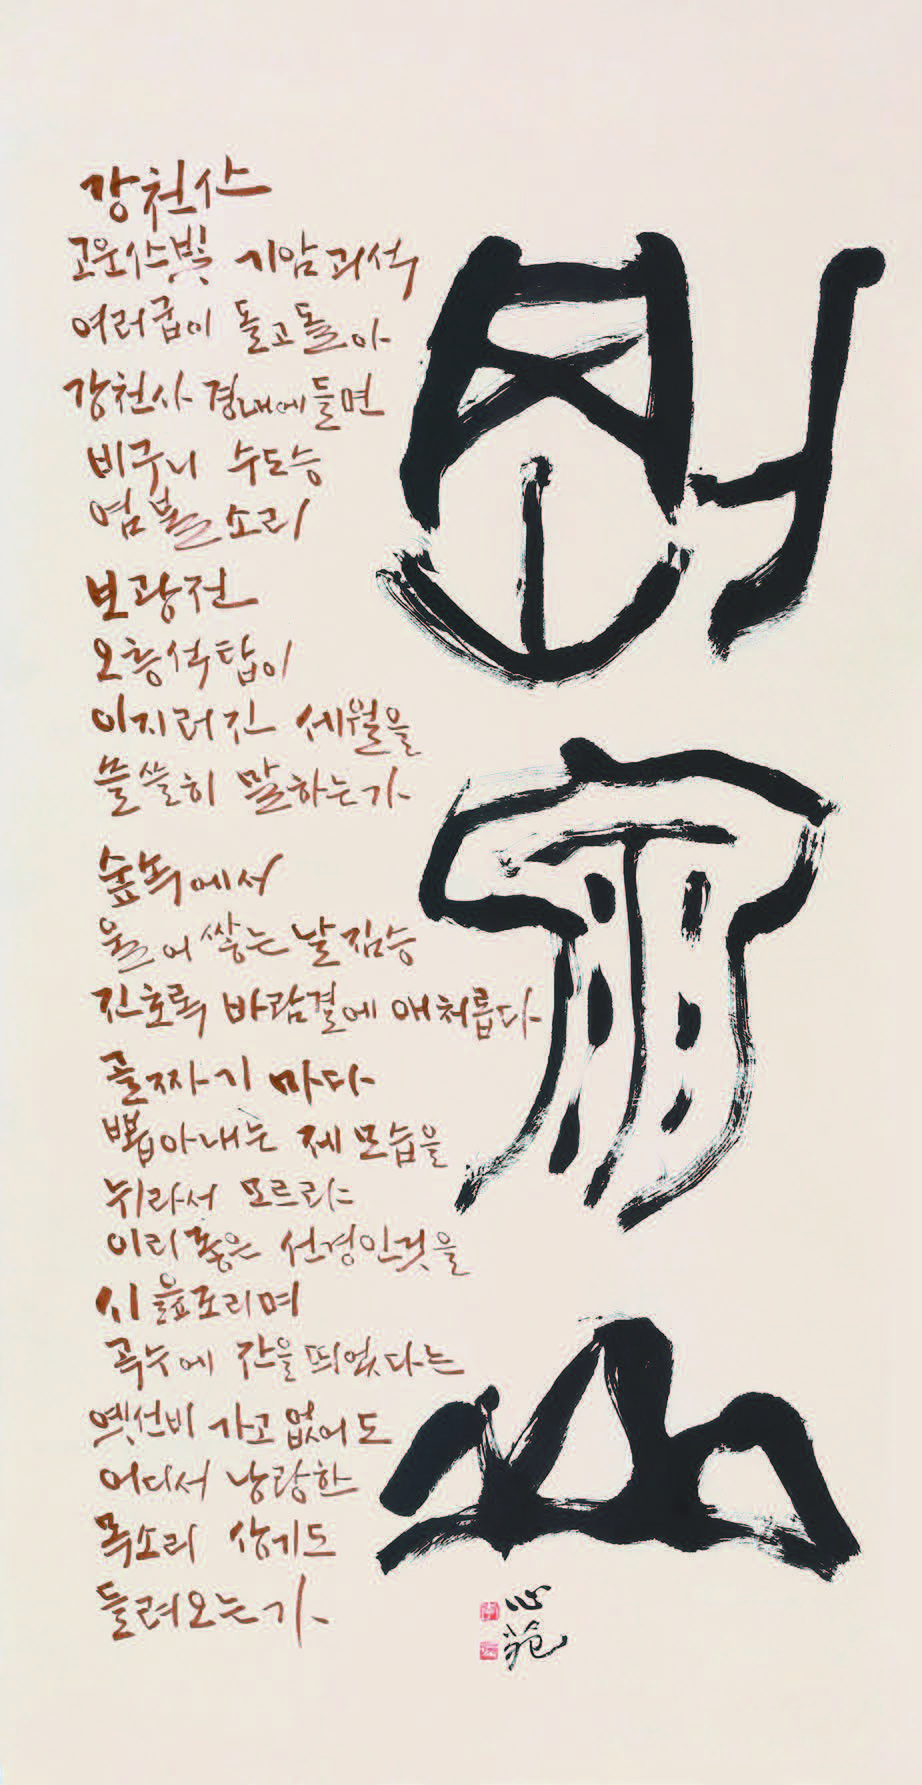 剛泉山
강천산
고운산빛 기암괴석
여러굽이 돌고돌아
강천사 경내에들면
비구니 수도승
염불소리
보광전
오층석탑이
이지러진 세월을
쓸쓸히 말하는가
숲속에서
울어쌓는 날짐승
진초록 바람결에 애처롭다
골짜기 마다
뽑아내는 제모습을
뉘라서 모르랴는
이리좋은 선경인것을
시 읊조리며
곡수에 잔을 띄웠다는
옛선비 가고없어도
어디서 낭랑한
목소리 상기도
들려오는가
心苑